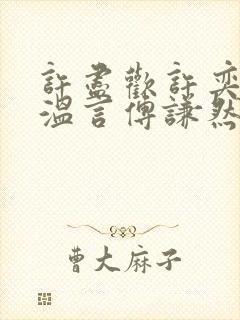 許盡歡許奕
溫言傅謙然
曹大麻子